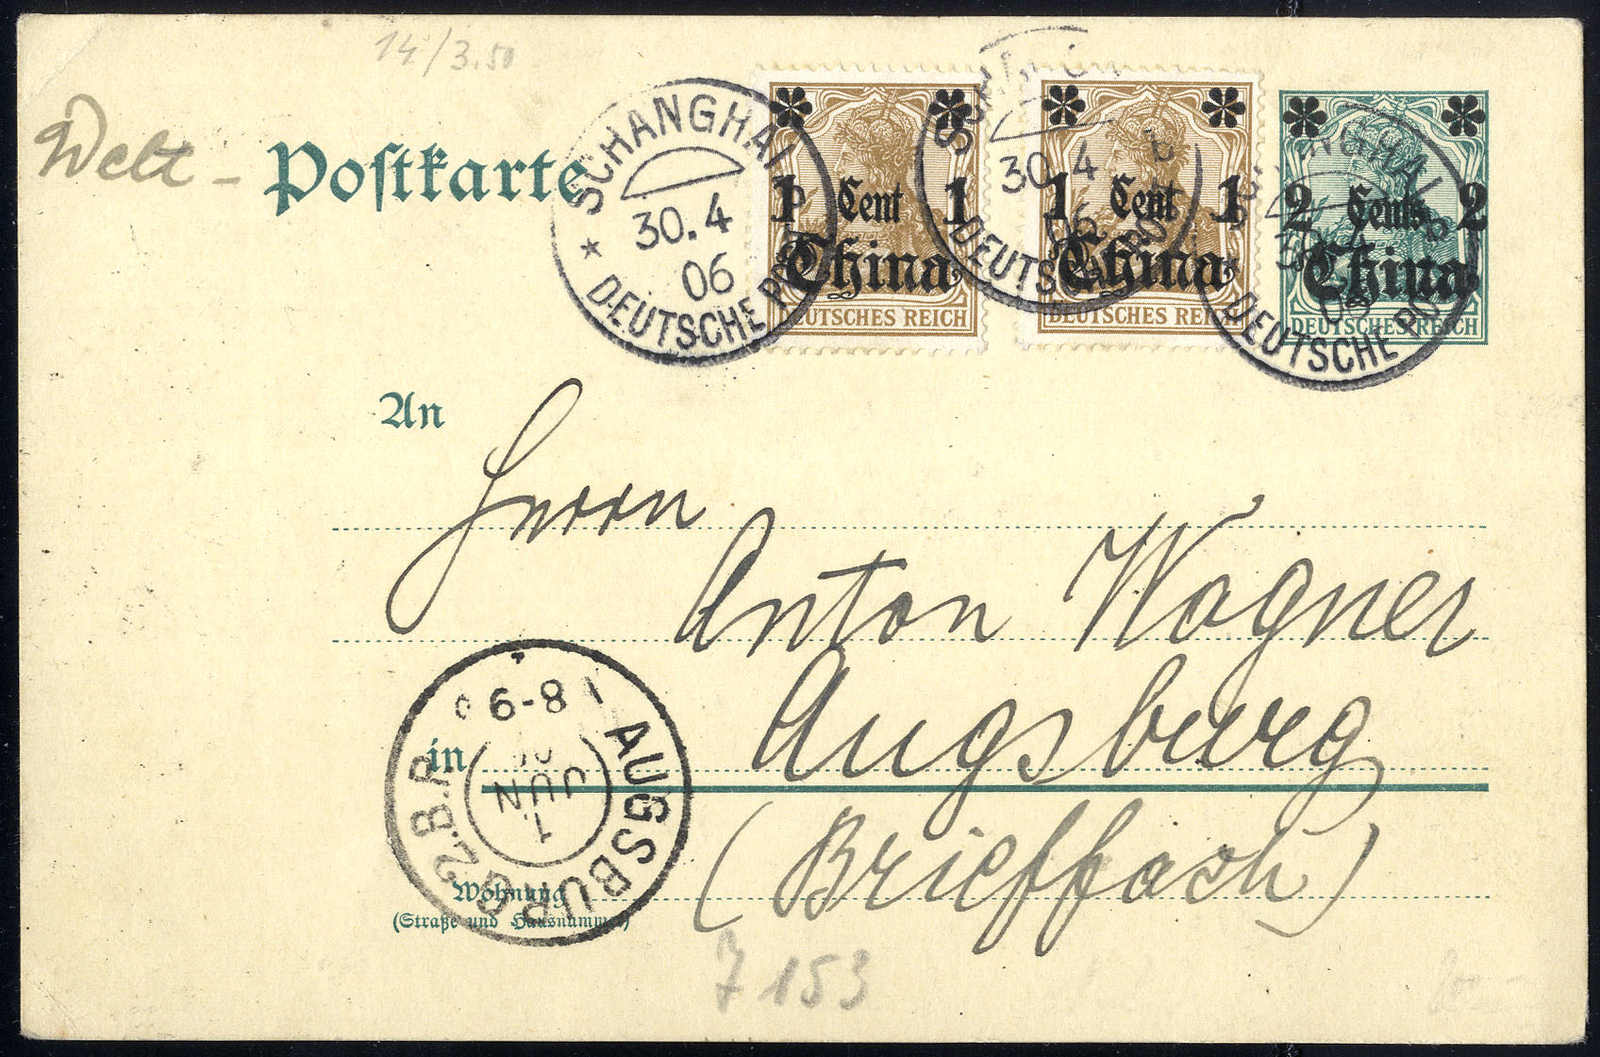 14/3.50
Welt -
Postkarte
SCHANGHAI
30.4
06
★ DEUTSCHE POST
1 Cent 1
China
DEUTSCHES REICH
30.4
06
DEUTSCHE POST
1 Cent 1
China
DEUTSCHES REICH
2 Cents 2
China
DEUTSCHES REICH
SCHANGHAI
06
DEUTSCHE POST
An
Herrn
Anton Wagner
in Augsburg
(Brieffach)
AUGSBURG 2.B.P.
6-8
1
JUN
Wohnung
(Straße und Hausnummer)
7 153